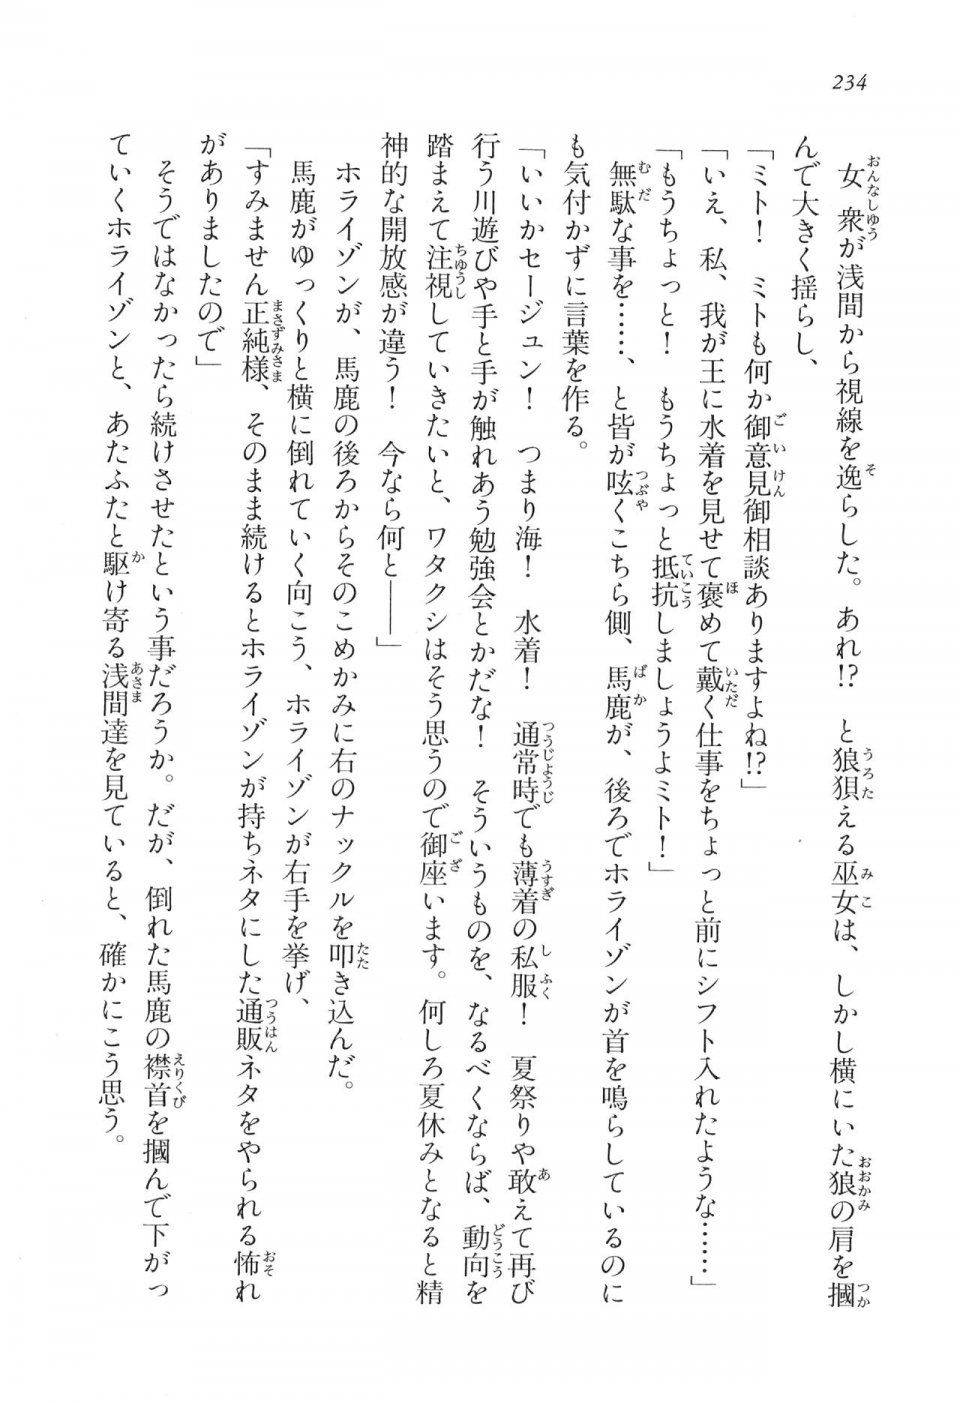 234
女衆が浅間から視線を逸らした。あれ!?　と狼狽える巫女は、しかし横にいた狼の肩を摑
んで大きく揺らし、
「ミト！　ミトも何か御意見御相談ありますよね!?」
「いえ、私、我が王に水着を見せて褒めて戴く仕事をちょっと前にシフト入れたような……」
「もうちょっと！　もうちょっと抵抗しましょうよミト！」
無駄な事を……、と皆が呟くこちら側、馬鹿が、後ろでホライゾンが首を鳴らしているのに
も気付かずに言葉を作る。
「いいかセージュン！　つまり海！　水着！　通常時でも薄着の私服！　夏祭りや敢えて再び
行う川遊びや手と手が触れあう勉強会とかだな！　そういうものを、なるべくならば、動向を
踏まえて注視していきたいと、ワタクシはそう思うので御座います。何しろ夏休みとなると精
神的な開放感が違う！　今なら何と――」
ホライゾンが、馬鹿の後ろからそのこめかみに右のナックルを叩き込んだ。
馬鹿がゆっくりと横に倒れていく向こう、ホライゾンが右手を挙げ、
「すみません正純様、そのまま続けるとホライゾンが持ちネタにした通販ネタをやられる怖れ
がありましたので」
そうではなかったら続けさせたという事だろうか。だが、倒れた馬鹿の襟首を摑んで下がっ
ていくホライゾンと、あたふたと駆け寄る浅間達を見ていると、確かにこう思う。